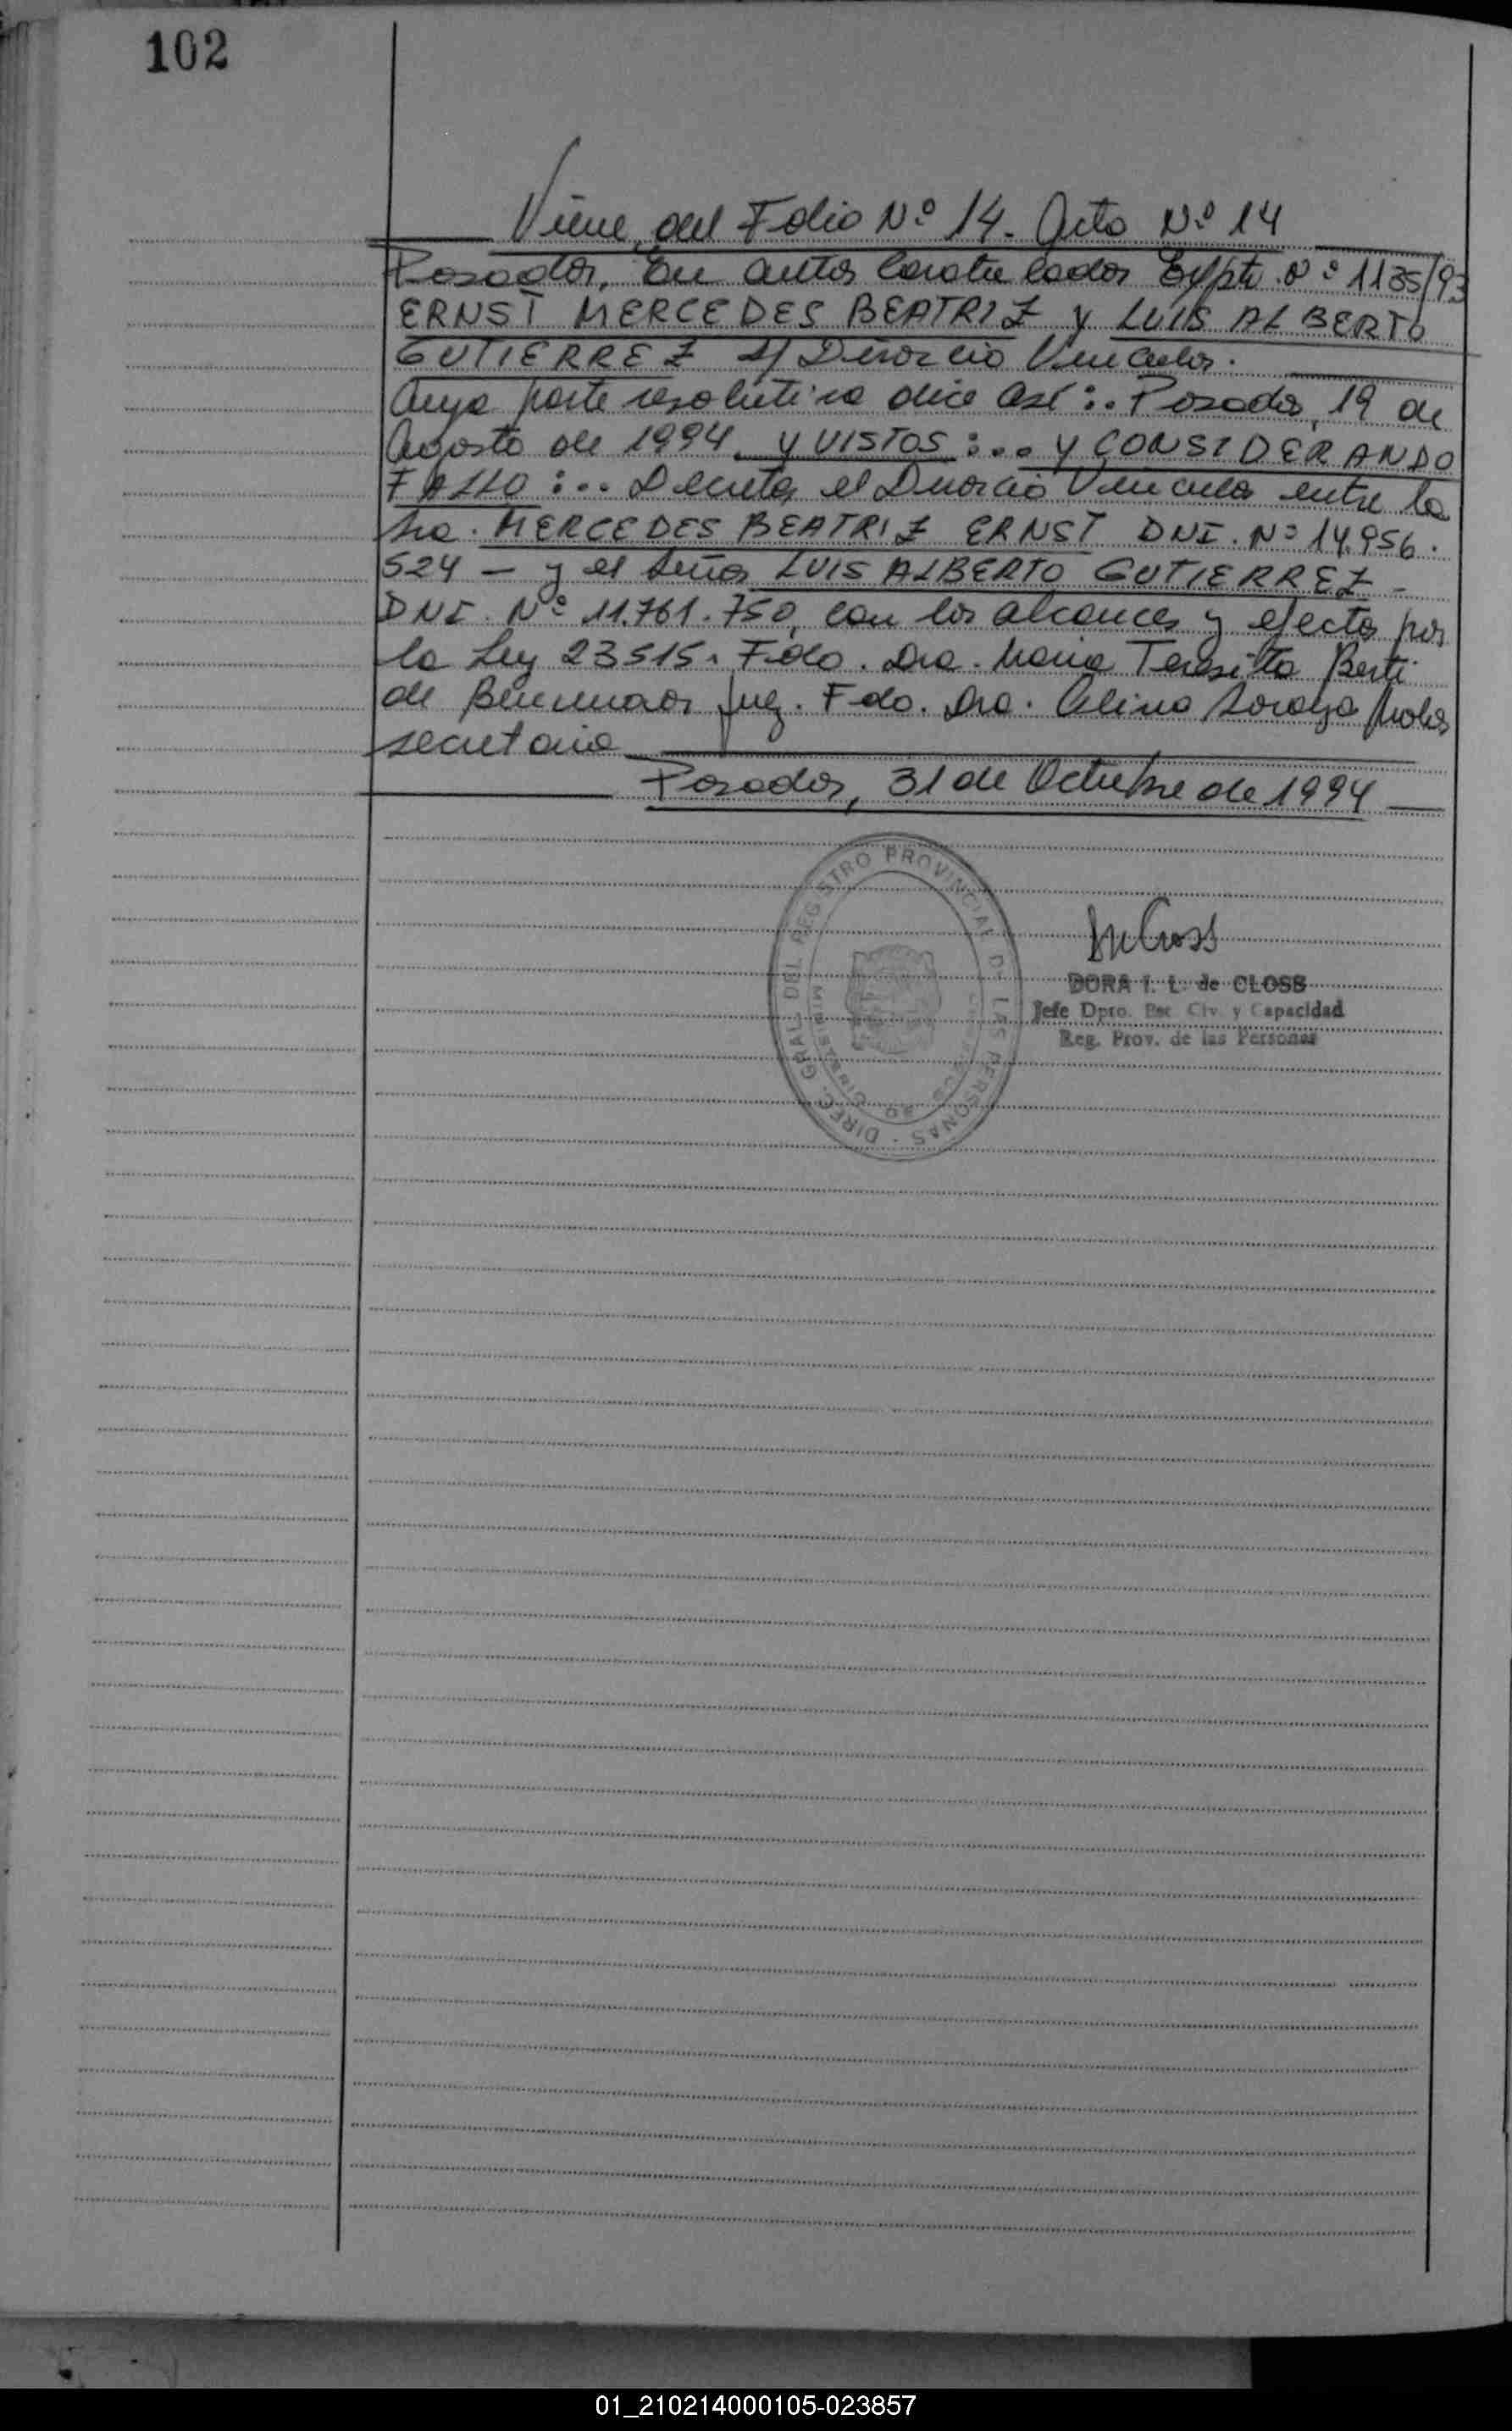 102
Viene del Folio Nº 14. Acta Nº 14
Posadas, En autos Caratulados Expte. Nº 1135/93
ERNST MERCEDES BEATRIZ y LUIS ALBERTO
GUTIERREZ S/ Divorcio Vincular.
Cuya parte resolutiva dice así:.. Posadas, 19 de
Agosto de 1994. y VISTOS:... y CONSIDERANDO
FALLO:... Decretar el Divorcio Vincular entre la
Sra. MERCEDES BEATRIZ ERNST DNI. Nº 14.956.
524 - y el Señor LUIS ALBERTO GUTIERREZ -
DNI. Nº 11.761.750, con los alcances y efectos por
la Ley 23515. Fdo. Dra. Maria Teresita Berti
de Juez. Fdo. Dra. Alina
secretaria
Posadas, 31 de Octubre de 1994
DIREC. GRAL. DEL REGISTRO PROVINCIAL DE LAS PERSONAS
DORA I. L. de CLOSS
Jefe Dpto. Est. Civ. y Capacidad
Reg. Prov. de las Personas
01_210214000105-023857